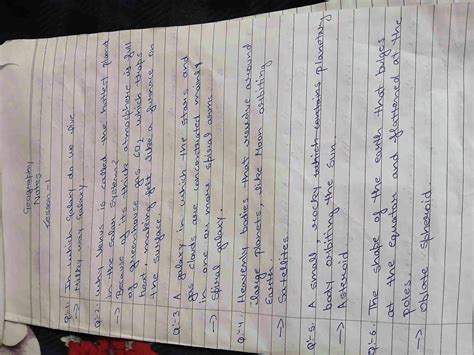 Geography
Notes
Lesson-1
Q:-1:- In which Galaxy do we live
→ Milky way Galaxy.
Q:-2:- Why Venus is called the hottest planet
in the solar system?
→ Because of its thick atmosphere is full
of greenhouse gas CO2 which traps
heat, making felt like a furnace on
the surface.
Q:-3:- A galaxy in which the stars and
gas clouds are concentrated mainly
in one or more spiral arms.
→ Spiral galaxy.
Q:-4:- Heavenly bodies that revolve around
large planets, like Moon orbiting
Earth.
→ Satellites.
Q:-5:- A small, rocky which contains planetary
body orbiting the Sun.
→ Asteroid
Q:-6:- The shape of the earth that bulges
at the equator and flattened at the
poles.
→ Oblate spheroid.